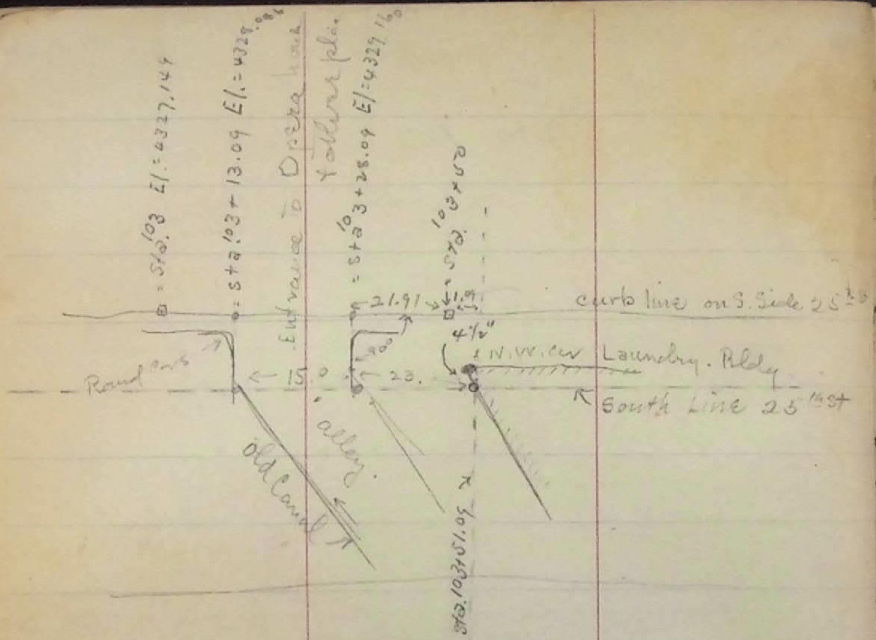 = Sta. 103 El. = 4327.149
= Sta. 103 + 13.09 El. = 4328.
Entrance to Opera
= Sta. 103 + 28.09 El = 4329.16
= Sta. 103 + 50
21.91
1.9
curb line on S. Side 25th
4½"
N.W. Cor Laundry. Bldg
Round
15.0
23.
South Line 25th St
alley
old Canal
Sta. 103+51.09